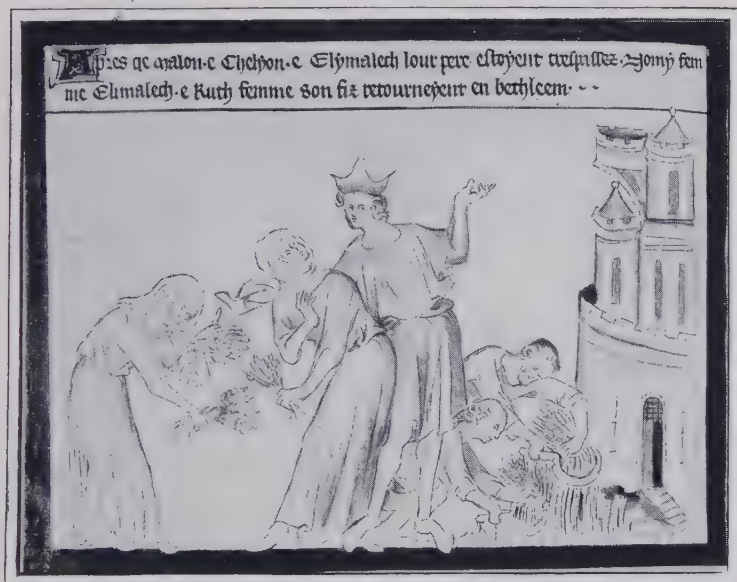 Apres qe malon·e Chelyon·e Elymalech lour pere estoyent trespassez·Nomy fem
me Elimalech·e Ruth femme son fiz retourneyent en bethleem·